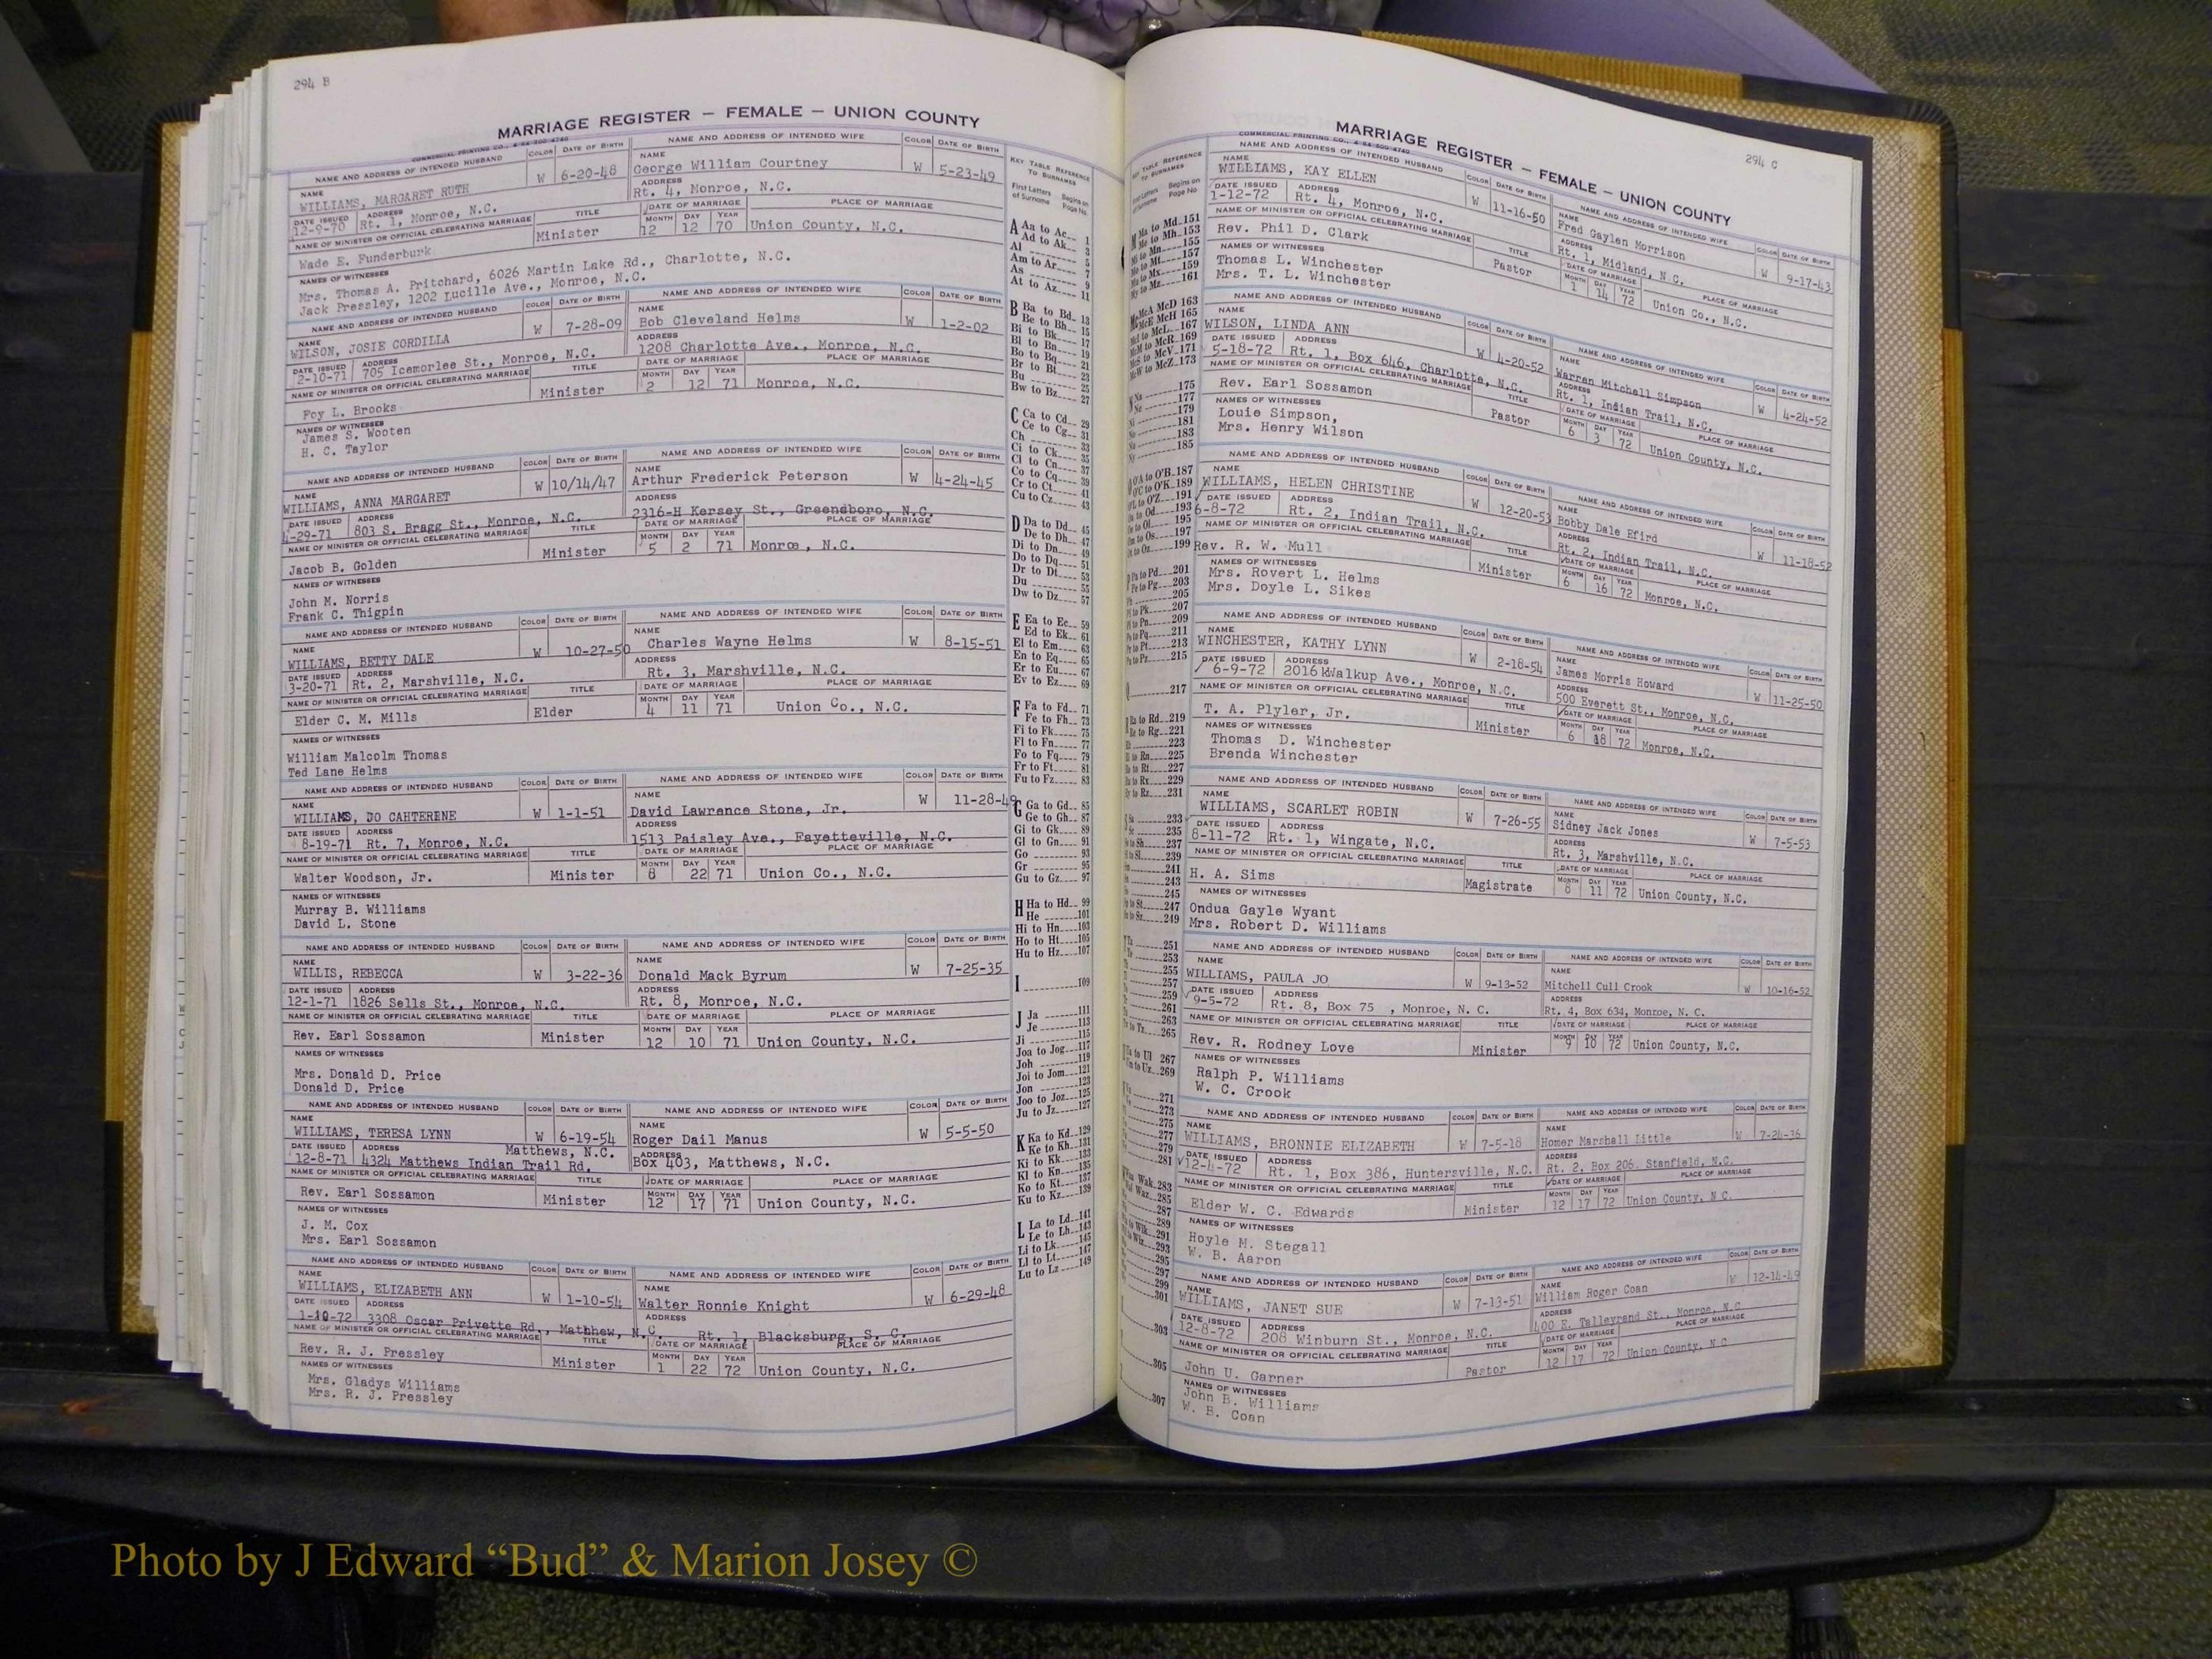 294 B
MARRIAGE REGISTER — FEMALE — UNION COUNTY
NAME AND ADDRESS OF INTENDED HUSBAND COLOR DATE OF BIRTH NAME AND ADDRESS OF INTENDED WIFE COLOR DATE OF BIRTH
NAME WILLIAMS, MARGARET RUTH W 6-20-48 NAME George William Courtney W 5-23-49
DATE ISSUED 12-9-70 ADDRESS Rt. 1, Monroe, N.C. ADDRESS Rt. 4, Monroe, N.C.
NAME OF MINISTER OR OFFICIAL CELEBRATING MARRIAGE TITLE DATE OF MARRIAGE PLACE OF MARRIAGE
Wade E. Funderburk Minister MONTH 12 DAY 12 YEAR 70 Union County, N.C.
NAMES OF WITNESSES
Mrs. Thomas A. Pritchard, 6026 Martin Lake Rd., Charlotte, N.C.
Jack Pressley, 1202 Lucille Ave., Monroe, N.C.
NAME AND ADDRESS OF INTENDED HUSBAND COLOR DATE OF BIRTH NAME AND ADDRESS OF INTENDED WIFE COLOR DATE OF BIRTH
NAME WILSON, JOSIE CORDILLA W 7-28-09 NAME Bob Cleveland Helms W 1-2-02
DATE ISSUED 2-10-71 ADDRESS 705 Icemorlee St., Monroe, N.C. ADDRESS 1208 Charlotte Ave., Monroe, N.C.
NAME OF MINISTER OR OFFICIAL CELEBRATING MARRIAGE TITLE DATE OF MARRIAGE PLACE OF MARRIAGE
Foy L. Brooks Minister MONTH 2 DAY 12 YEAR 71 Monroe, N.C.
NAMES OF WITNESSES
James S. Wooten
H. C. Taylor
NAME AND ADDRESS OF INTENDED HUSBAND COLOR DATE OF BIRTH NAME AND ADDRESS OF INTENDED WIFE COLOR DATE OF BIRTH
NAME WILLIAMS, ANNA MARGARET W 10/14/47 NAME Arthur Frederick Peterson W 4-24-45
DATE ISSUED 4-29-71 ADDRESS 803 S. Bragg St., Monroe, N.C. ADDRESS 2316-H Kersey St., Greensboro, N.C.
NAME OF MINISTER OR OFFICIAL CELEBRATING MARRIAGE TITLE DATE OF MARRIAGE PLACE OF MARRIAGE
Jacob B. Golden Minister MONTH 5 DAY 2 YEAR 71 Monroe, N.C.
NAMES OF WITNESSES
John M. Norris
Frank C. Thigpin
NAME AND ADDRESS OF INTENDED HUSBAND COLOR DATE OF BIRTH NAME AND ADDRESS OF INTENDED WIFE COLOR DATE OF BIRTH
NAME WILLIAMS, BETTY DALE W 10-27-50 NAME Charles Wayne Helms W 8-15-51
DATE ISSUED 3-20-71 ADDRESS Rt. 2, Marshville, N.C. ADDRESS Rt. 3, Marshville, N.C.
NAME OF MINISTER OR OFFICIAL CELEBRATING MARRIAGE TITLE DATE OF MARRIAGE PLACE OF MARRIAGE
Elder C. M. Mills Elder MONTH 4 DAY 11 YEAR 71 Union Co., N.C.
NAMES OF WITNESSES
William Malcolm Thomas
Ted Lane Helms
NAME AND ADDRESS OF INTENDED HUSBAND COLOR DATE OF BIRTH NAME AND ADDRESS OF INTENDED WIFE COLOR DATE OF BIRTH
NAME WILLIAMS, JO CAHTERINE W 1-1-51 NAME David Lawrence Stone, Jr. W 11-28-49
DATE ISSUED 8-19-71 ADDRESS Rt. 7, Monroe, N.C. ADDRESS 1513 Paisley Ave., Fayetteville, N.C.
NAME OF MINISTER OR OFFICIAL CELEBRATING MARRIAGE TITLE DATE OF MARRIAGE PLACE OF MARRIAGE
Walter Woodson, Jr. Minister MONTH 8 DAY 22 YEAR 71 Union Co., N.C.
NAMES OF WITNESSES
Murray B. Williams
David L. Stone
NAME AND ADDRESS OF INTENDED HUSBAND COLOR DATE OF BIRTH NAME AND ADDRESS OF INTENDED WIFE COLOR DATE OF BIRTH
NAME WILLIS, REBECCA W 3-22-36 NAME Donald Mack Byrum W 7-25-35
DATE ISSUED 12-1-71 ADDRESS 1826 Sells St., Monroe, N.C. ADDRESS Rt. 8, Monroe, N.C.
NAME OF MINISTER OR OFFICIAL CELEBRATING MARRIAGE TITLE DATE OF MARRIAGE PLACE OF MARRIAGE
Rev. Earl Sossamon Minister MONTH 12 DAY 10 YEAR 71 Union County, N.C.
NAMES OF WITNESSES
Mrs. Donald D. Price
Donald D. Price
NAME AND ADDRESS OF INTENDED HUSBAND COLOR DATE OF BIRTH NAME AND ADDRESS OF INTENDED WIFE COLOR DATE OF BIRTH
NAME WILLIAMS, TERESA LYNN W 6-19-54 NAME Roger Dail Manus W 5-5-50
Matthews, N.C.
DATE ISSUED 12-8-71 ADDRESS 4324 Matthews Indian Trail Rd. ADDRESS Box 403, Matthews, N.C.
NAME OF MINISTER OR OFFICIAL CELEBRATING MARRIAGE TITLE DATE OF MARRIAGE PLACE OF MARRIAGE
Rev. Earl Sossamon Minister MONTH 12 DAY 17 YEAR 71 Union County, N.C.
NAMES OF WITNESSES
J. M. Cox
Mrs. Earl Sossamon
NAME AND ADDRESS OF INTENDED HUSBAND COLOR DATE OF BIRTH NAME AND ADDRESS OF INTENDED WIFE COLOR DATE OF BIRTH
NAME WILLIAMS, ELIZABETH ANN W 1-10-54 NAME Walter Ronnie Knight W 6-29-48
DATE ISSUED 1-10-72 ADDRESS 3308 Oscar Privette Rd., Matthew, N.C. ADDRESS Rt. 1, Blacksburg, S. C.
NAME OF MINISTER OR OFFICIAL CELEBRATING MARRIAGE TITLE DATE OF MARRIAGE PLACE OF MARRIAGE
Rev. R. J. Pressley Minister MONTH 1 DAY 22 YEAR 72 Union County, N.C.
NAMES OF WITNESSES
Mrs. Gladys Williams
Mrs. R. J. Pressley
KEY TABLE REFERENCE TO SURNAMES
First Letters of Surname Begins on Page No.
A Aa to Ac 1
Ad to Ak 3
Al 5
Am to Ar 7
As 9
At to Az 11
B Ba to Bd 13
Be to Bh 15
Bi to Bk 17
Bl to Bn 19
Bo to Bq 21
Br to Bt 23
Bu 25
Bw to Bz 27
C Ca to Cd 29
Ce to Cg 31
Ch 33
Ci to Ck 35
Cl to Cn 37
Co to Cq 39
Cr to Ct 41
Cu to Cz 43
D Da to Dd 45
De to Dh 47
Di to Dn 49
Do to Dq 51
Dr to Dt 53
Du 55
Dw to Dz 57
E Ea to Ec 59
Ed to Ek 61
El to Em 63
En to Eq 65
Er to Eu 67
Ev to Ez 69
F Fa to Fd 71
Fe to Fh 73
Fi to Fk 75
Fl to Fn 77
Fo to Fq 79
Fr to Ft 81
Fu to Fz 83
G Ga to Gd 85
Ge to Gh 87
Gi to Gk 89
Gl to Gn 91
Go 93
Gr 95
Gu to Gz 97
H Ha to Hd 99
He 101
Hi to Hn 103
Ho to Ht 105
Hu to Hz 107
I 109
J Ja 111
Je 113
Ji 115
Joa to Jog 117
Joh 119
Joi to Jom 121
Jon 123
Joo to Joz 125
Ju to Jz 127
K Ka to Kd 129
Ke to Kh 131
Ki to Kk 133
Kl to Kn 135
Ko to Kt 137
Ku to Kz 139
L La to Ld 141
Le to Lh 143
Li to Lk 145
Ll to Lt 147
Lu to Lz 149
294 C
MARRIAGE REGISTER — FEMALE — UNION COUNTY
NAME AND ADDRESS OF INTENDED HUSBAND COLOR DATE OF BIRTH NAME AND ADDRESS OF INTENDED WIFE COLOR DATE OF BIRTH
NAME WILLIAMS, KAY ELLEN W 11-16-50 NAME Fred Gaylen Morrison W 9-17-43
DATE ISSUED 1-12-72 ADDRESS Rt. 4, Monroe, N.C. ADDRESS Rt. 1, Midland, N.C.
NAME OF MINISTER OR OFFICIAL CELEBRATING MARRIAGE TITLE DATE OF MARRIAGE PLACE OF MARRIAGE
Rev. Phil D. Clark Pastor MONTH 1 DAY 14 YEAR 72 Union Co., N.C.
NAMES OF WITNESSES
Thomas L. Winchester
Mrs. T. L. Winchester
NAME AND ADDRESS OF INTENDED HUSBAND COLOR DATE OF BIRTH NAME AND ADDRESS OF INTENDED WIFE COLOR DATE OF BIRTH
NAME WILSON, LINDA ANN W 4-20-52 NAME Warren Mitchell Simpson W 4-24-52
DATE ISSUED 5-18-72 ADDRESS Rt. 1, Box 646, Charlotte, N.C. ADDRESS Rt. 1, Indian Trail, N.C.
NAME OF MINISTER OR OFFICIAL CELEBRATING MARRIAGE TITLE DATE OF MARRIAGE PLACE OF MARRIAGE
Rev. Earl Sossamon Pastor MONTH 6 DAY 3 YEAR 72 Union County, N.C.
NAMES OF WITNESSES
Louie Simpson,
Mrs. Henry Wilson
NAME AND ADDRESS OF INTENDED HUSBAND COLOR DATE OF BIRTH NAME AND ADDRESS OF INTENDED WIFE COLOR DATE OF BIRTH
NAME WILLIAMS, HELEN CHRISTINE W 12-20-53 NAME Bobby Dale Efird W 11-18-52
DATE ISSUED 6-8-72 ADDRESS Rt. 2, Indian Trail, N.C. ADDRESS Rt. 2, Indian Trail, N.C.
NAME OF MINISTER OR OFFICIAL CELEBRATING MARRIAGE TITLE DATE OF MARRIAGE PLACE OF MARRIAGE
Rev. R. W. Mull Minister MONTH 6 DAY 16 YEAR 72 Monroe, N.C.
NAMES OF WITNESSES
Mrs. Rovert L. Helms
Mrs. Doyle L. Sikes
NAME AND ADDRESS OF INTENDED HUSBAND COLOR DATE OF BIRTH NAME AND ADDRESS OF INTENDED WIFE COLOR DATE OF BIRTH
NAME WINCHESTER, KATHY LYNN W 2-18-54 NAME James Morris Howard W 11-25-50
DATE ISSUED 6-9-72 ADDRESS 2016 Walkup Ave., Monroe, N.C. ADDRESS 500 Everett St., Monroe, N.C.
NAME OF MINISTER OR OFFICIAL CELEBRATING MARRIAGE TITLE DATE OF MARRIAGE PLACE OF MARRIAGE
T. A. Plyler, Jr. Minister MONTH 6 DAY 18 YEAR 72 Monroe, N.C.
NAMES OF WITNESSES
Thomas D. Winchester
Brenda Winchester
NAME AND ADDRESS OF INTENDED HUSBAND COLOR DATE OF BIRTH NAME AND ADDRESS OF INTENDED WIFE COLOR DATE OF BIRTH
NAME WILLIAMS, SCARLET ROBIN W 7-26-55 NAME Sidney Jack Jones W 7-5-53
DATE ISSUED 8-11-72 ADDRESS Rt. 1, Wingate, N.C. ADDRESS Rt. 3, Marshville, N.C.
NAME OF MINISTER OR OFFICIAL CELEBRATING MARRIAGE TITLE DATE OF MARRIAGE PLACE OF MARRIAGE
H. A. Sims Magistrate MONTH 8 DAY 11 YEAR 72 Union County, N.C.
NAMES OF WITNESSES
Ondua Gayle Wyant
Mrs. Robert D. Williams
NAME AND ADDRESS OF INTENDED HUSBAND COLOR DATE OF BIRTH NAME AND ADDRESS OF INTENDED WIFE COLOR DATE OF BIRTH
NAME WILLIAMS, PAULA JO W 9-13-52 NAME Mitchell Cull Crook W 10-16-52
DATE ISSUED 9-5-72 ADDRESS Rt. 8, Box 75 , Monroe, N. C. ADDRESS Rt. 4, Box 634, Monroe, N. C.
NAME OF MINISTER OR OFFICIAL CELEBRATING MARRIAGE TITLE DATE OF MARRIAGE PLACE OF MARRIAGE
Rev. R. Rodney Love Minister MONTH 9 DAY 10 YEAR 72 Union County, N.C.
NAMES OF WITNESSES
Ralph P. Williams
W. C. Crook
NAME AND ADDRESS OF INTENDED HUSBAND COLOR DATE OF BIRTH NAME AND ADDRESS OF INTENDED WIFE COLOR DATE OF BIRTH
NAME WILLIAMS, BRONNIE ELIZABETH W 7-5-18 NAME Homer Marshall Little W 7-24-36
DATE ISSUED 12-4-72 ADDRESS Rt. 1, Box 386, Huntersville, N.C. ADDRESS Rt. 2, Box 206, Stanfield, N.C.
NAME OF MINISTER OR OFFICIAL CELEBRATING MARRIAGE TITLE DATE OF MARRIAGE PLACE OF MARRIAGE
Elder W. C. Edwards Minister MONTH 12 DAY 17 YEAR 72 Union County, N C.
NAMES OF WITNESSES
Hoyle M. Stegall
W. B. Aaron
NAME AND ADDRESS OF INTENDED HUSBAND COLOR DATE OF BIRTH NAME AND ADDRESS OF INTENDED WIFE COLOR DATE OF BIRTH
NAME WILLIAMS, JANET SUE W 7-13-51 NAME William Roger Coan W 12-14-49
DATE ISSUED 12-8-72 ADDRESS 208 Winburn St., Monroe, N.C. ADDRESS 400 E. Talleyrand St., Monroe, N.C.
NAME OF MINISTER OR OFFICIAL CELEBRATING MARRIAGE TITLE DATE OF MARRIAGE PLACE OF MARRIAGE
John U. Garner Pastor MONTH 12 DAY 17 YEAR 72 Union County, N C
NAMES OF WITNESSES
John B. Williams
W. B. Coan
Photo by J Edward “Bud” & Marion Josey ©